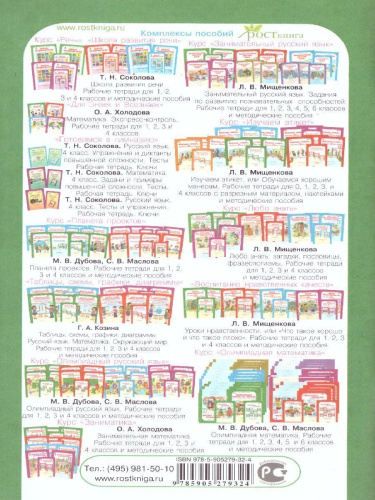 www.rostkniga.ru
Комплексы пособий РОСТкнига
Курс «Речь». «Школа развития речи»
Т. Н. Соколова
Школа развития речи
Рабочие тетради для 1, 2,
3 и 4 классов и методические пособия
«Для Знаек и Незнаек»
О. А. Холодова
Математика. Экспресс-контроль.
Рабочие тетради для 1, 2, 3
и 4 классов
«Готовимся в гимназию»
Т. Н. Соколова. Русский язык.
4 класс. Упражнения и диктанты
повышенной сложности. Тесты.
Рабочая тетрадь. Ключи
Т. Н. Соколова. Математика.
4 класс. Задачи и примеры
повышенной сложности. Тесты.
Рабочая тетрадь. Ключи
Т. Н. Соколова. Русский язык.
4 класс. Тесты и упражнения.
Рабочая тетрадь. Ключи
Курс «Планета проектов»
М. В. Дубова, С. В. Маслова
Планета проектов. Рабочие тетради для 1, 2,
3 и 4 классов и методические пособия
«Таблицы, схемы, графики, диаграммы»
Г. А. Козина
Таблицы, схемы, графики, диаграммы.
Русский язык. Математика. Окружающий мир.
Рабочие тетради для 1, 2, 3 и 4 классов
и методические пособия
Курс «Олимпиадный русский язык»
М. В. Дубова, С. В. Маслова
Олимпиадный русский язык. Рабочие тетради
для 1, 2, 3 и 4 классов и методические пособия
Курс «Заниматика»
О. А. Холодова
Занимательная математика.
Рабочие тетради для 1, 2, 3
и 4 классов и методические пособия
Курс «Занимательный русский язык»
Л. В. Мищенкова
Занимательный русский язык. Задания
по развитию познавательных способностей.
Рабочие тетради для 1, 2, 3, 4, 5, 6 классов
и методические пособия
Курс «Изучаем этикет»
Л. В. Мищенкова
Изучаем этикет, или Обучаемся хорошим
манерам. Рабочие тетради для 0, 1, 2, 3 и
4 классов с разрезным материалом, наклейками
и методические пособия
Курс «Любознать»
Л. В. Мищенкова
Любознать: загадки, пословицы,
фразеологизмы. Рабочие тетради для 1, 2,
3 и 4 классов и методические пособия
«Воспитание нравственных качеств»
Л. В. Мищенкова
Уроки нравственности, или «Что такое хорошо
и что такое плохо». Рабочие тетради для 1, 2,
3 и 4 классов и методические пособия
Курс «Олимпиадная математика»
М. В. Дубова, С. В. Маслова
Олимпиадная математика. Рабочие
тетради для 2, 3, 4, 5 и 6 классов
и методические пособия
Тел.: (495) 981-50-10
www.rostkniga.ru
ISBN 978-5-905279-32-4
9 785905 279324